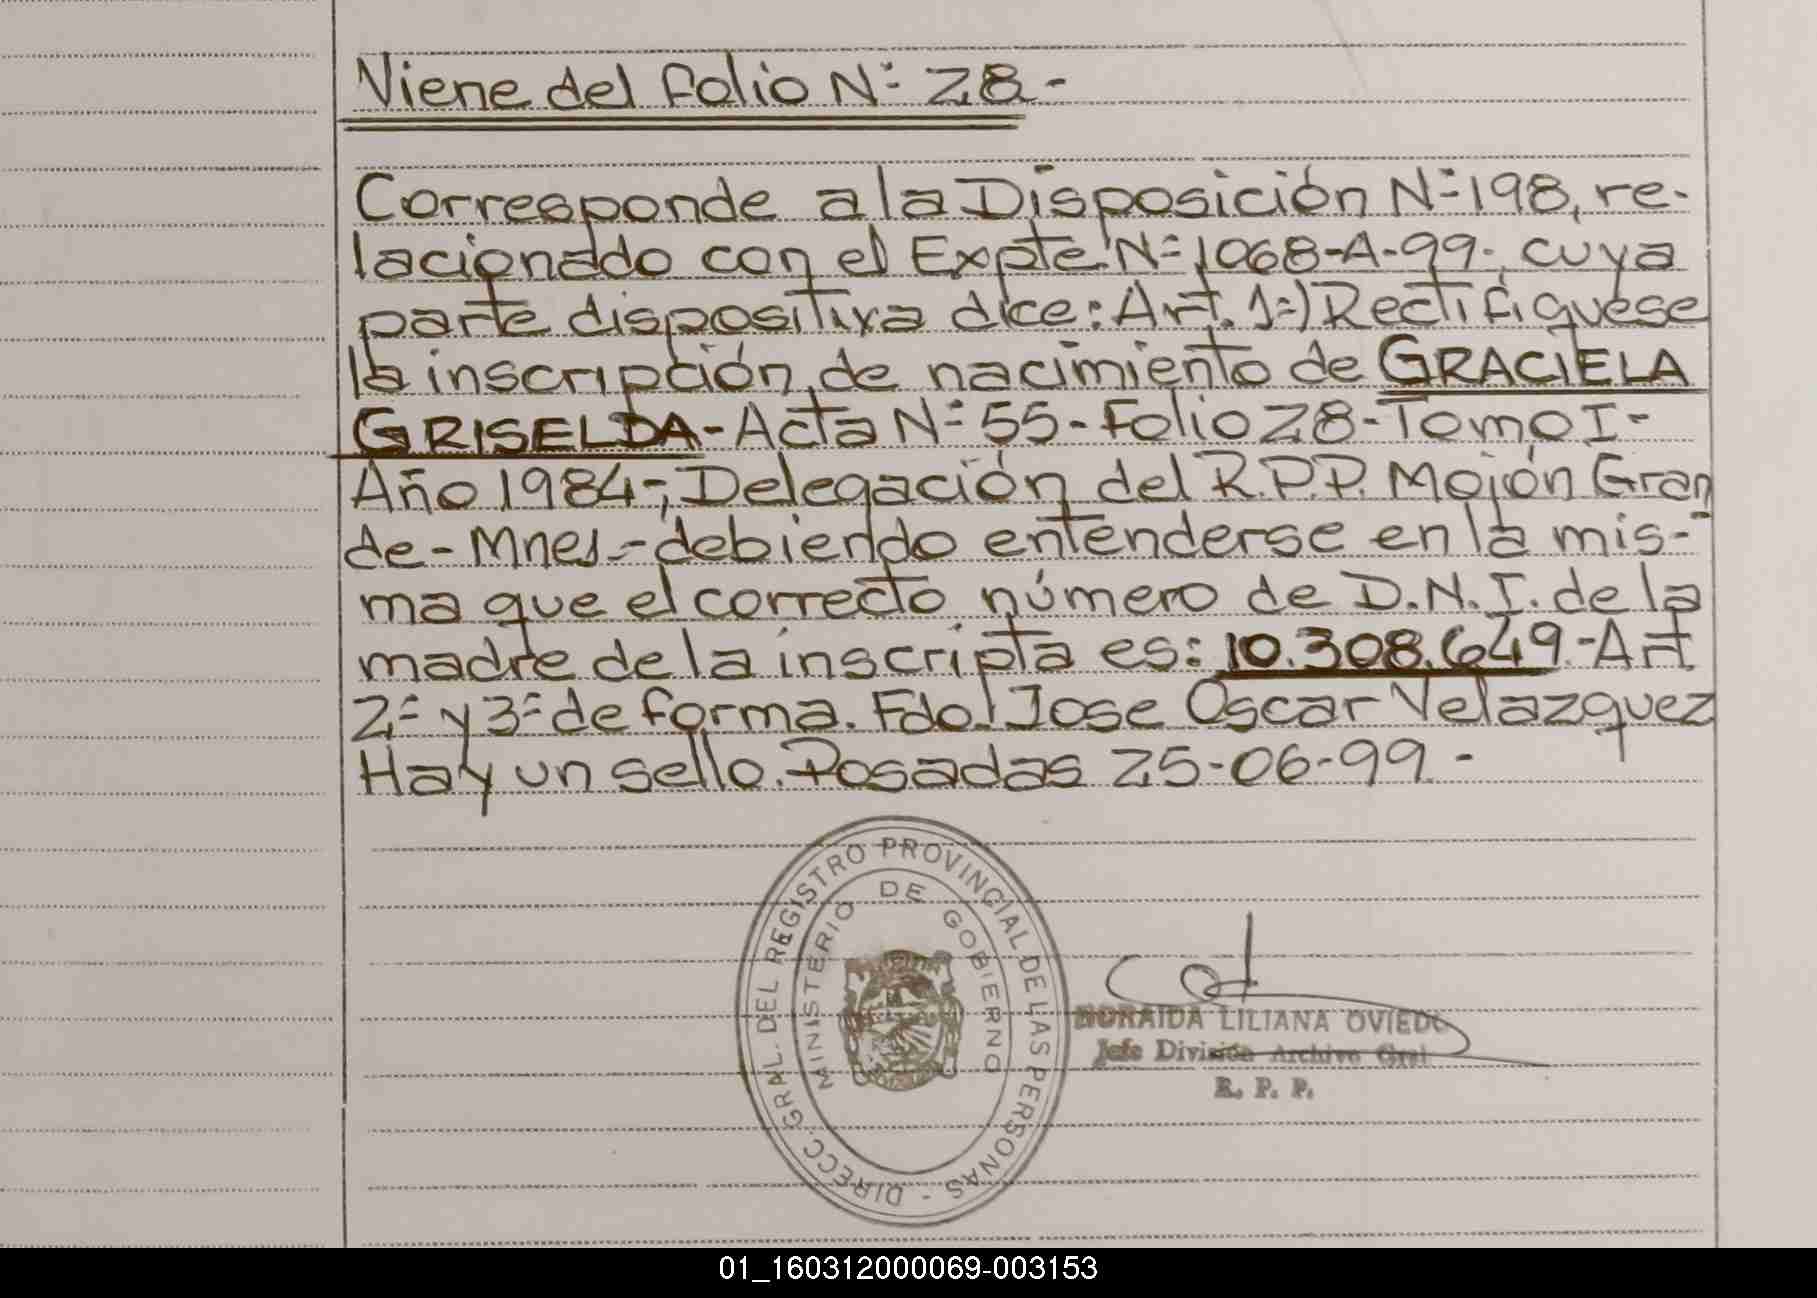 Viene del folio Nº 28-
Corresponde a la Disposición Nº 198, re-
lacionado con el Expte Nº 1068-A-99-, cuya
parte dispositiva dice: Art. 1º) Rectifiquese
la inscripción de nacimiento de GRACIELA
GRISELDA-Acta Nº 55-Folio 28-Tomo I-
Año 1984-, Delegación del R.P.P. Mojón Gran
de-Mnes.-debiendo entenderse en la mis-
ma que el correcto número de D.N.I. de la
madre de la inscripta es: 10.308.649.-Art
2º y 3º de forma. Fdo! Jose Oscar Velazquez
Hay un sello. Posadas 25-06-99.-
DIRECC. GRAL. DEL REGISTRO PROVINCIAL DE LAS PERSONAS -
MINISTERIO DE GOBIERNO
LILIANA OVIEDO
Jefe División Archivo Gral
R. P. P.
01_160312000069-003153